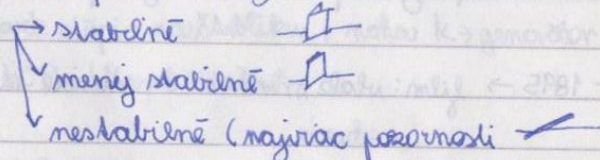 → stabilné
menej stabilné
nestabilné (najviac pozornosti